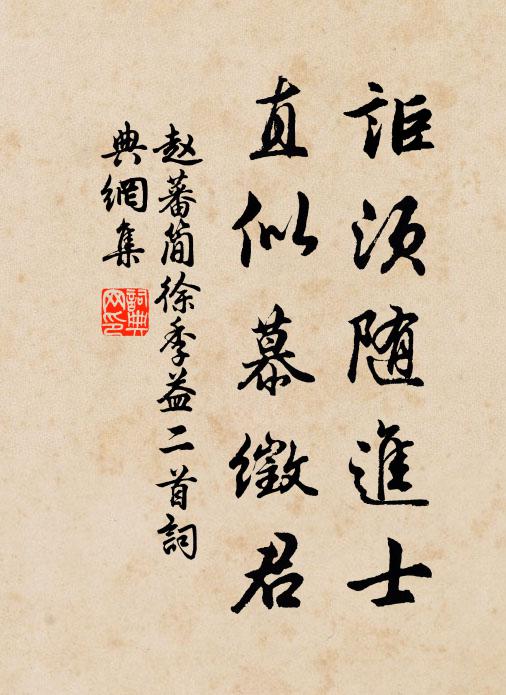 詎須随進士
直似慕徵君
赵蕃简徐季益二首詞
典網集
詞典網印